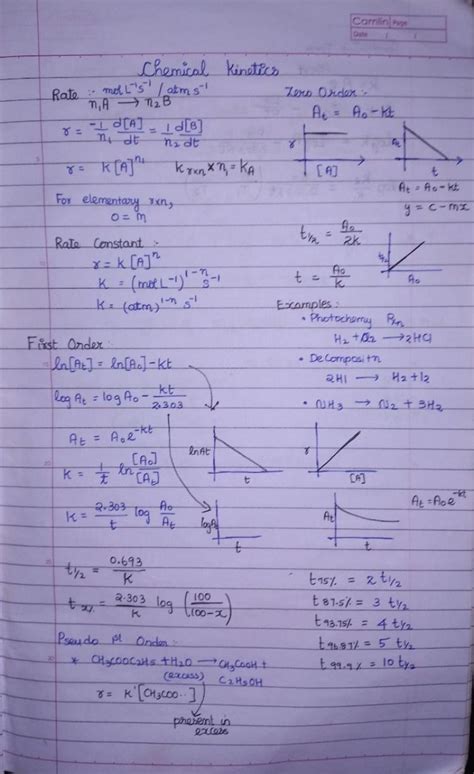 Camlin Page
Date / /
Chemical Kinetics
Rate :- mol L⁻¹ s⁻¹ / atm s⁻¹
n₁A → n₂B
r = -1/n₁ d[A]/dt = 1/n₂ d[B]/dt
r = k[A]^n₁ k_rxn × n₁ = k_A
For elementary rxn,
O = m
Rate Constant :-
r = k[A]ⁿ
K = (mol L⁻¹)^1-n s⁻¹
K = (atm)^1-n s⁻¹
Zero Order :-
At = A₀ - kt
r
[A]
At
t
At = A₀ - kt
y = c - mx
t½ = A₀/2k
t = A₀/k
t½
A₀
Examples :
• Photochemy Rxn
H₂ + Cl₂ → 2HCl
• Decompositn
2HI → H₂ + I₂
• NH₃ → N₂ + 3H₂
First Order :-
ln[At] = ln[A₀] - kt
log At = log A₀ - kt/2.303
At = A₀e^-kt
K = 1/t ln [A₀]/[At]
K = 2.303/t log A₀/At
t1/2 = 0.693/K
t x% = 2.303/K log (100/100-x)
ln At
t
r
[A]
log At
t
At
t
At = A₀e^-kt
t 75% = 2 t1/2
t 87.5% = 3 t1/2
t 93.75% = 4 t1/2
t 96.87% = 5 t1/2
t 99.9% = 10 t1/2
Pseudo Order :-
* CH₃COOC₂H₅ + H₂O → CH₃COOH +
(excess) C₂H₅OH
r = K'[CH₃COO..]
present in
excess